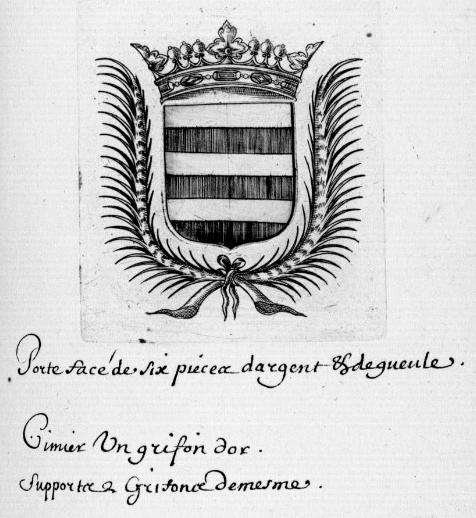 Porte facé de six pièces dargent & de gueule.
Cimier Un grifon dor.
Supports 2 Grifons de mesme.